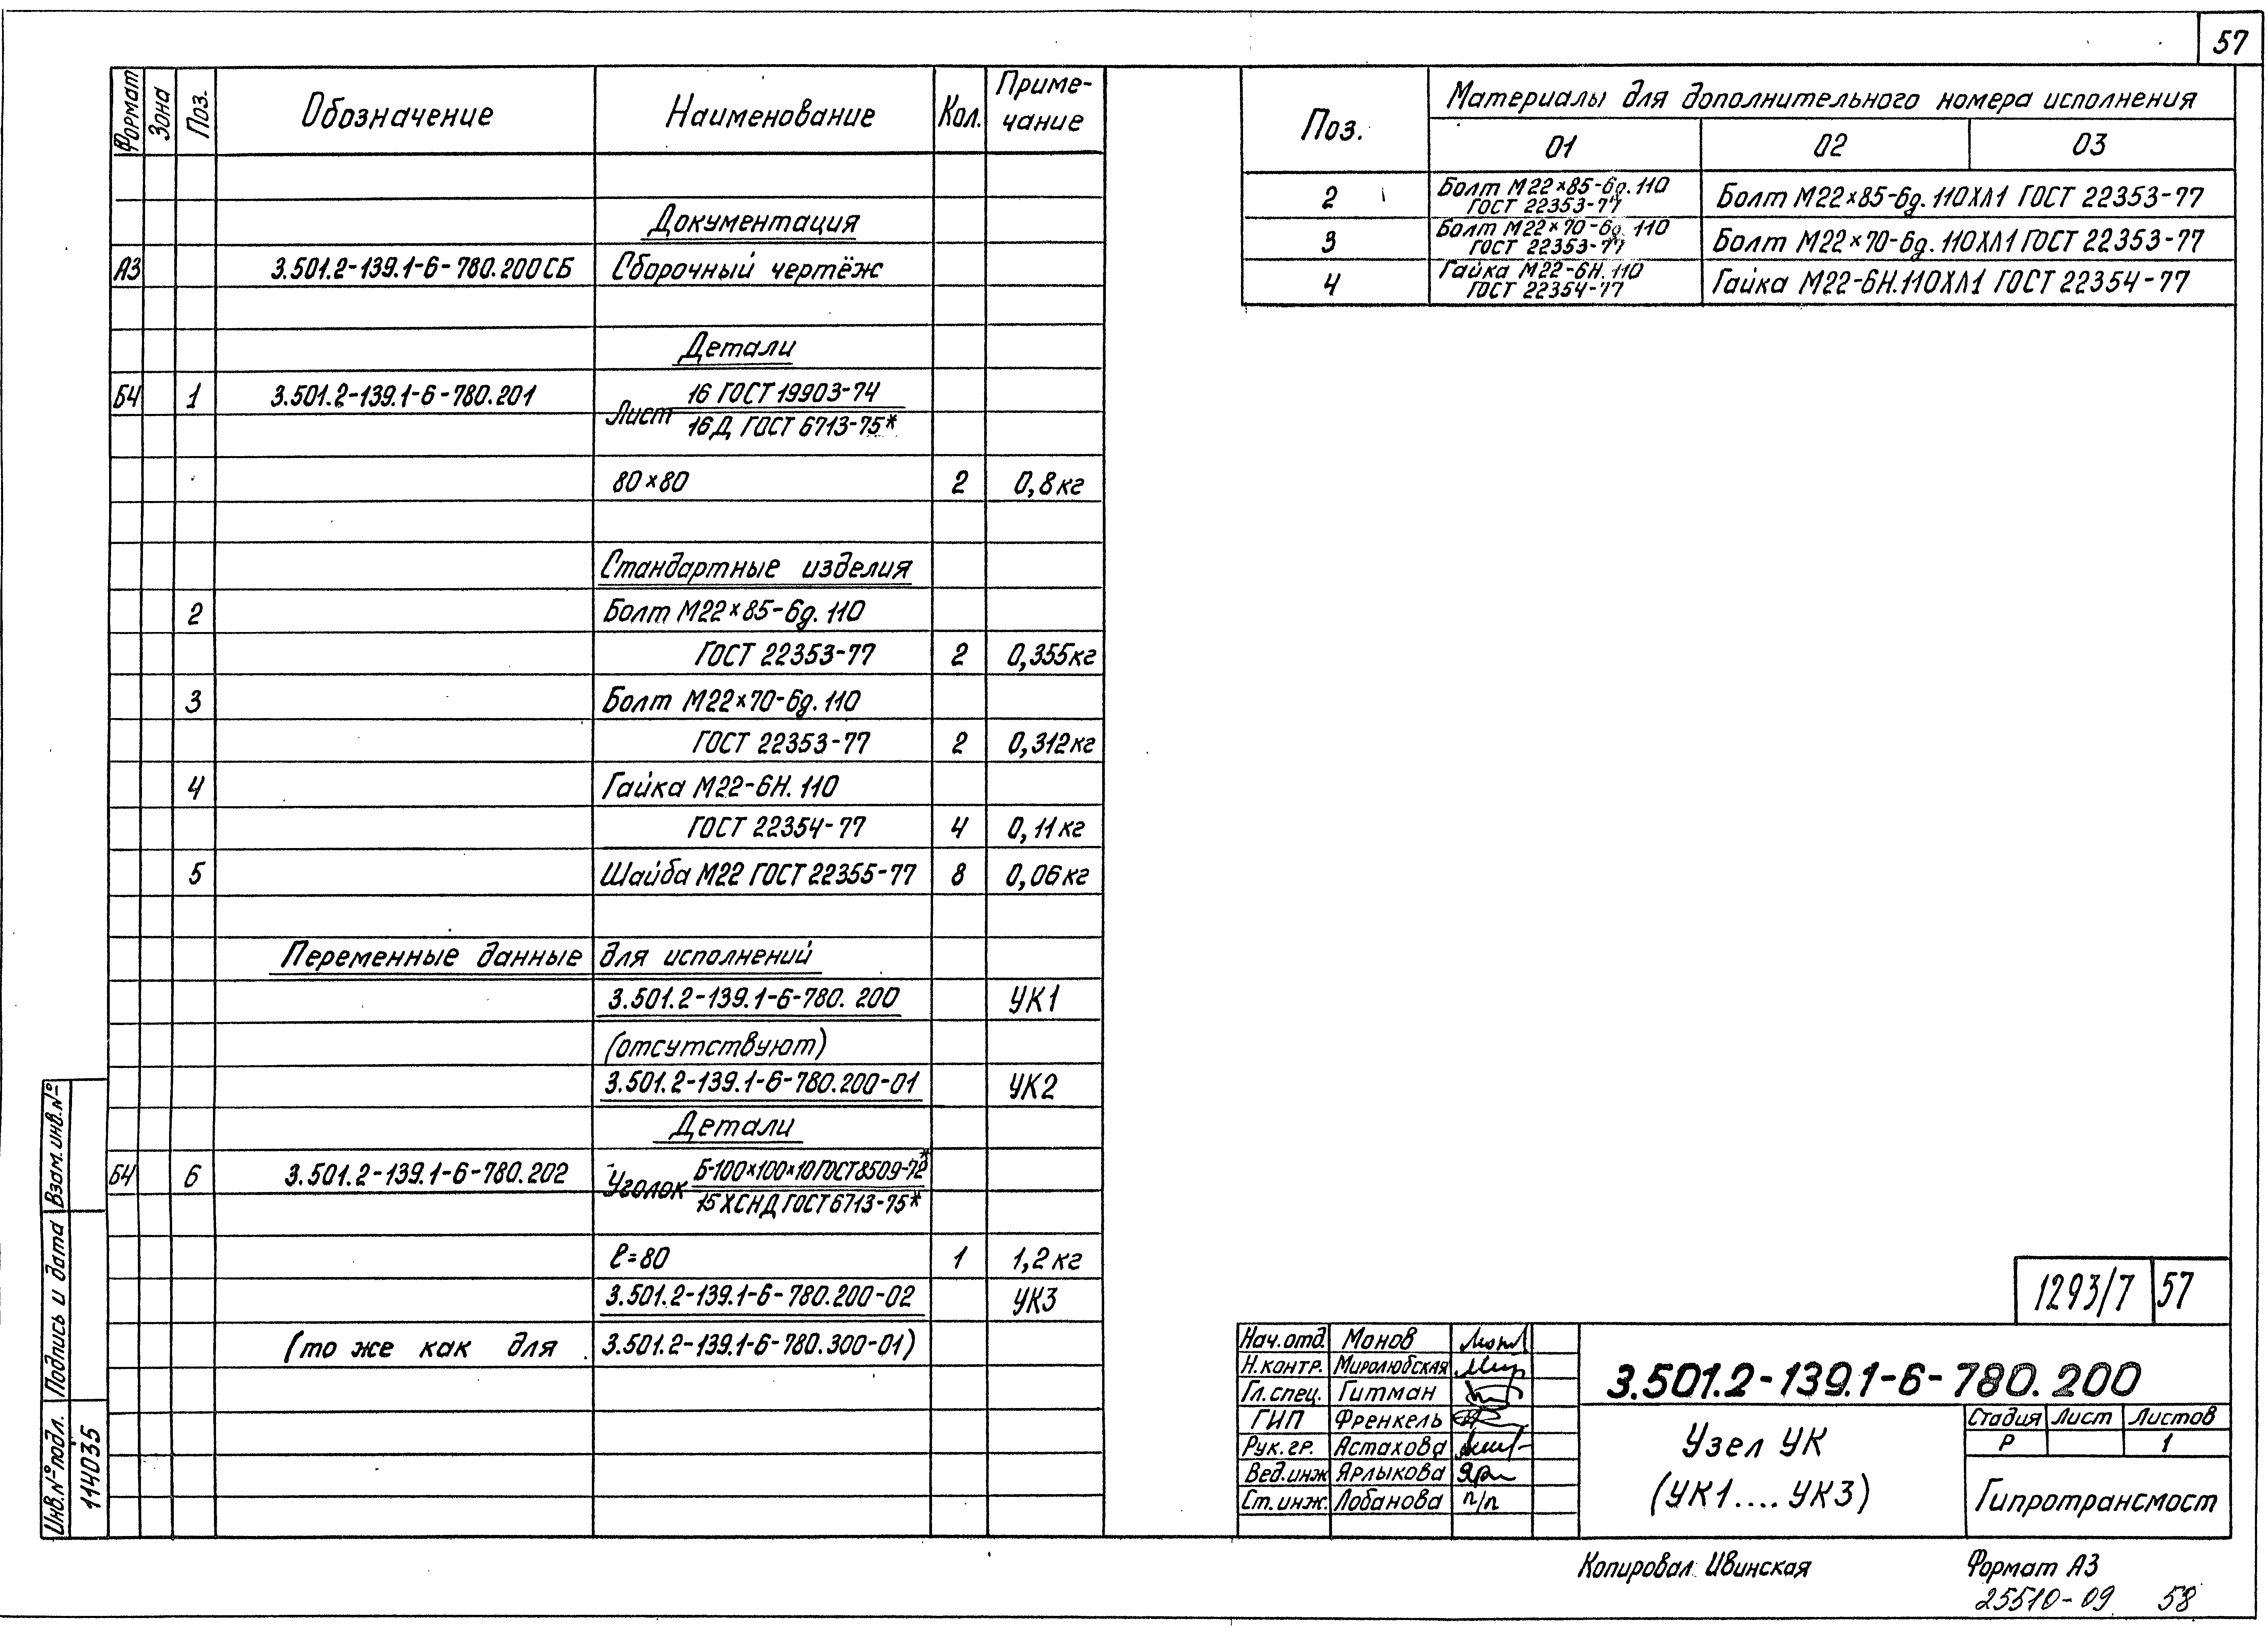 57
Формат Зона Поз. Обозначение Наименование Кол. Приме-
чание
Документация
А3 3.501.2-139.1-6-780.200СБ Сборочный чертёж
Детали
БЧ 1 3.501.2-139.1-6-780.201 Лист 16 ГОСТ 19903-74
16Д ГОСТ 6713-75*
80×80 2 0,8кг
Стандартные изделия
2 Болт М22×85-6g.110
ГОСТ 22353-77 2 0,355кг
3 Болт М22×70-6g.110
ГОСТ 22353-77 2 0,312кг
4 Гайка М22-6Н.110
ГОСТ 22354-77 4 0,11кг
5 Шайба М22 ГОСТ 22355-77 8 0,06кг
Переменные данные для исполнений
3.501.2-139.1-6-780.200 УК1
(отсутствуют)
3.501.2-139.1-6-780.200-01 УК2
Детали
БЧ 6 3.501.2-139.1-6-780.202 Уголок Б-100×100×10 ГОСТ 8509-72*
15ХСНД ГОСТ 6713-75*
ℓ=80 1 1,2кг
3.501.2-139.1-6-780.200-02 УК3
(то же как для 3.501.2-139.1-6-780.300-01)
Поз. Материалы для дополнительного номера исполнения
01 02 03
2 Болт М22×85-6g.110
ГОСТ 22353-77 Болт М22×85-6g.110ХЛ1 ГОСТ 22353-77
3 Болт М22×70-6g.110
ГОСТ 22353-77 Болт М22×70-6g.110ХЛ1 ГОСТ 22353-77
4 Гайка М22-6Н.110
ГОСТ 22354-77 Гайка М22-6Н.110ХЛ1 ГОСТ 22354-77
Инв.№подл. Подпись и дата Взам.инв.№
114035
1293/7 57
Нач.отд. Монов
Н.контр. Миролюбская
Гл.спец. Гитман
ГИП Френкель
Рук.гр. Астахова
Вед.инж Ярлыкова
Ст.инж. Лобанова п/п
3.501.2-139.1-6-780.200
Узел УК
(УК1....УК3)
Стадия Лист Листов
Р 1
Гипротрансмост
Копировал: Ивинская Формат А3
25510-09 58